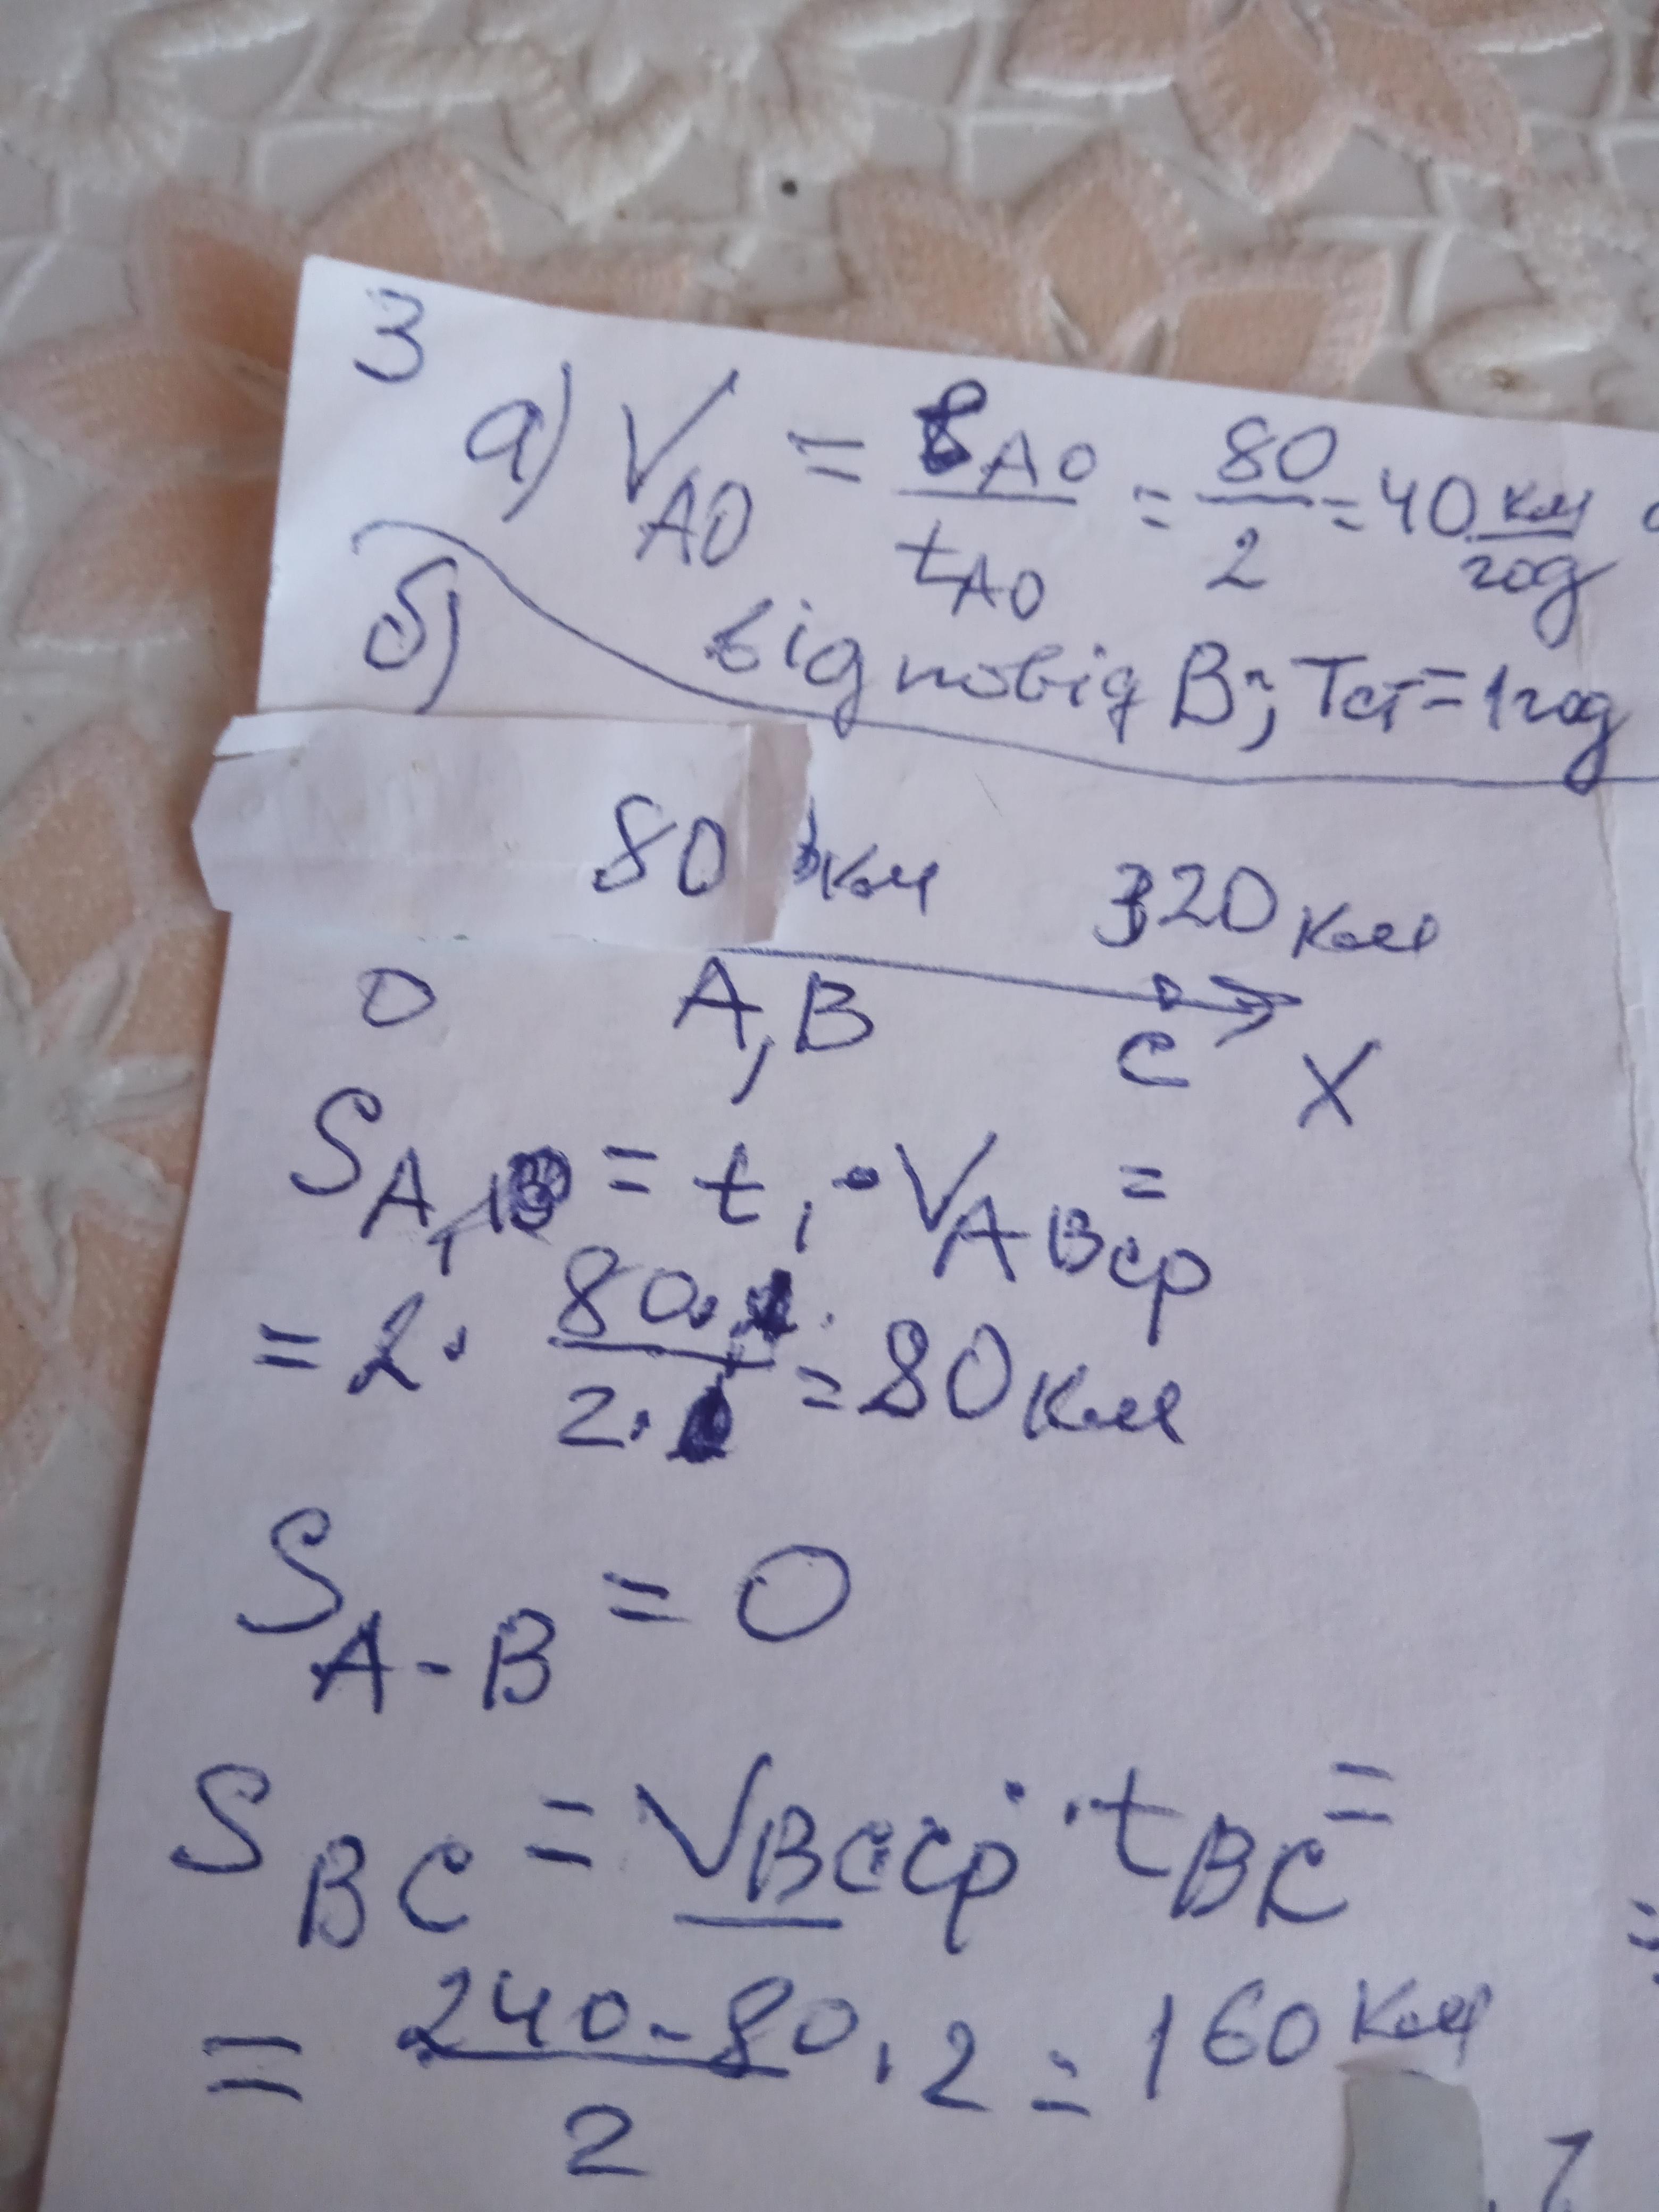 3
а) V_AO = S_AO / t_AO = 80 / 2 = 40 км/год
б) відповідь В; Тст = 1 год
80 км 320 км
0 А,В С X
S_A,B = t₁ · V_ABср =
= 2 · 80 · / 2 · = 80 км
S_A-B = 0
S_BC = V_BCср · t_BC =
= 240 - 80 / 2 · 2 = 160 км